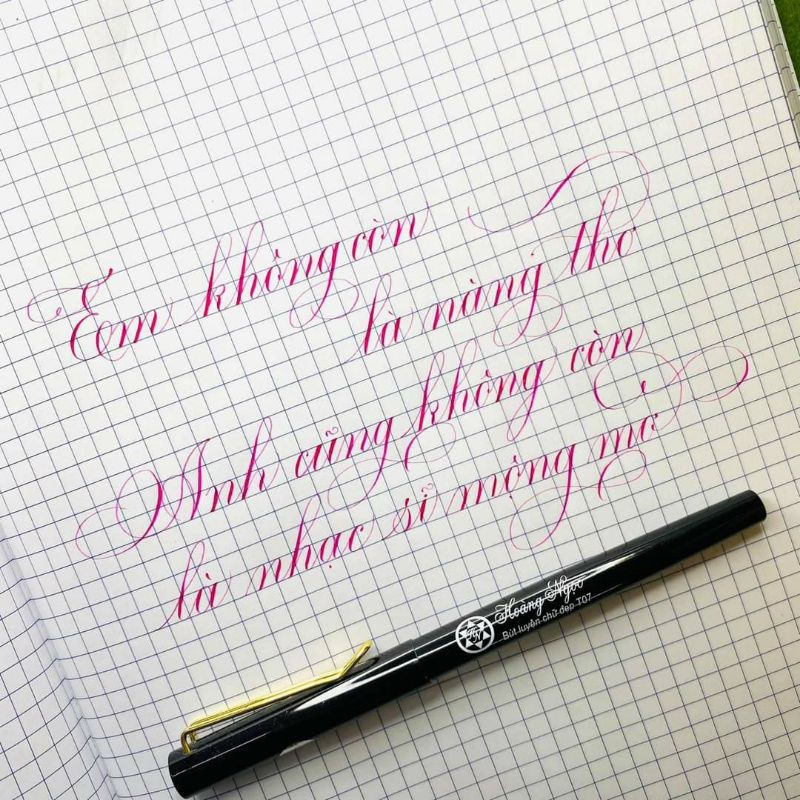 Em không còn
là nàng thơ
Anh cũng không còn
là nhạc sĩ mộng mơ
Hoàng Ngọc
Bút luyện chữ đẹp T07
HN